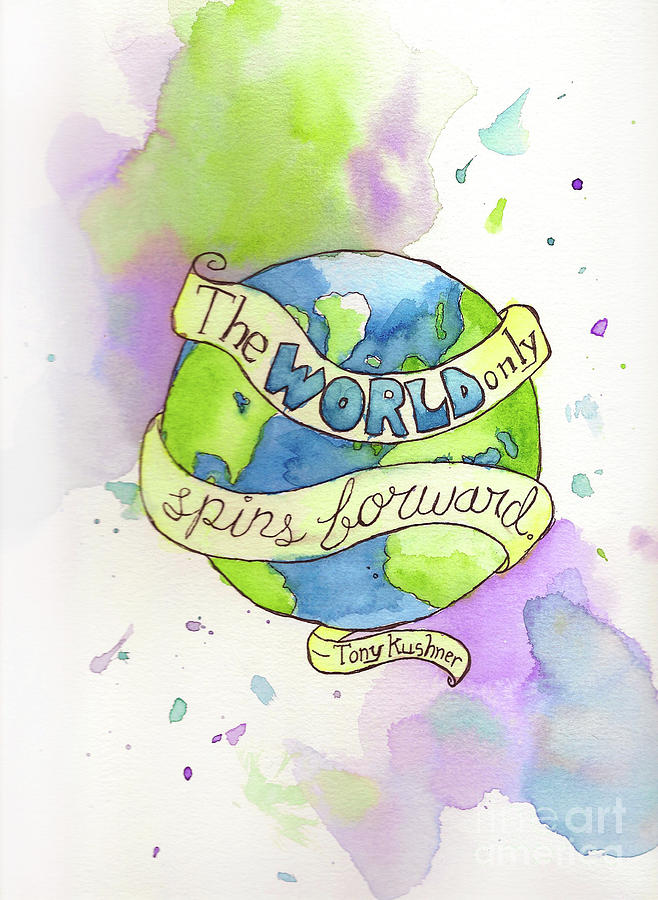 The WORLD only
spins forward.
– Tony Kushner
fine art
america